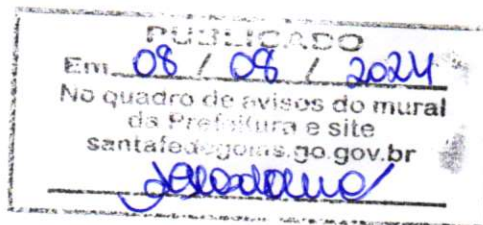 PUBLICADO
Em 08 / 08 / 2024
No quadro de avisos do mural
da Prefeitura e site
santafedegoias.go.gov.br